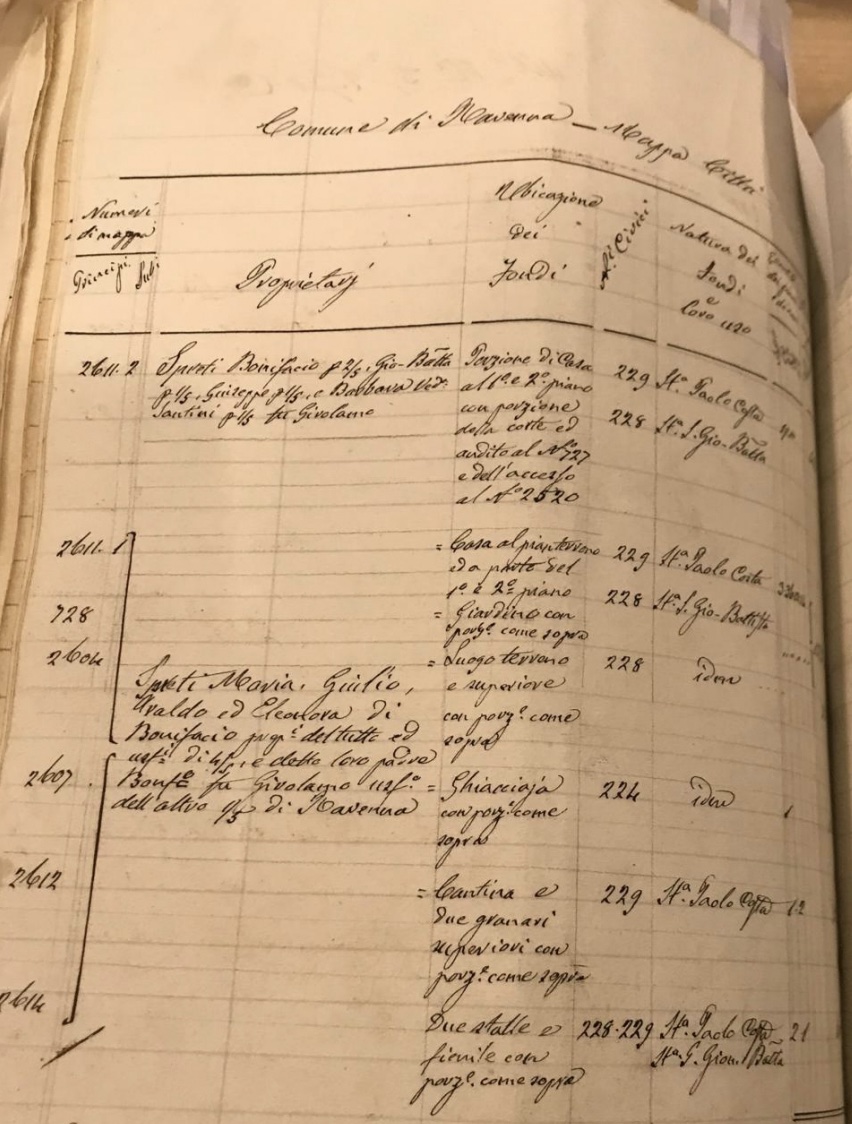 Comune di Ravenna — Mappa Città
Numeri
di mappa
Principi. Sub.
Proprietarj
Ubicazione
dei
Fondi
N.i Civici
Natura dei
Fondi
e
loro uso
2611. 2 Spreti Bonifacio p 2/5, Gio-Batta Porzione di Casa 229 St.a Paolo Costa
p 1/5, Giuseppe p 1/5, e Barbara Ved.a al 1.o e 2.o piano
Santini p 1/5 fu Girolamo con porzione 228 St.a S. Gio-Batta
della corte ed
andito al N.o 727
e dell'accesso
al N.o 2520
2611. 1 = Casa al pianterreno 229 St.a Paolo Costa
ed a parte del
1.o e 2.o piano 228 St.a S. Gio-Battista
728 = Giardino con
porz.e come sopra
2604 = Luogo terreno 228 idem
Spreti Maria, Giulio, e superiore
Araldo ed Eleonora di con porz.e come
Bonifacio prop.i del tutto ed sopra
usf.i di 4/5, e detto loro padre
2607 Bonf.o fu Girolamo usf.o = Ghiacciaja 224 idem 1
dell'altro 1/5 di Ravenna con porz.e come
sopra
2612 = Cantina e 229 St.a Paolo Costa 12
due granari
superiori con
porz.e come sopra
2614 Due stalle e 228-229 St.a Paolo Costa 21
fienile con St.a S. Giov. Batta
porz.e come sopra